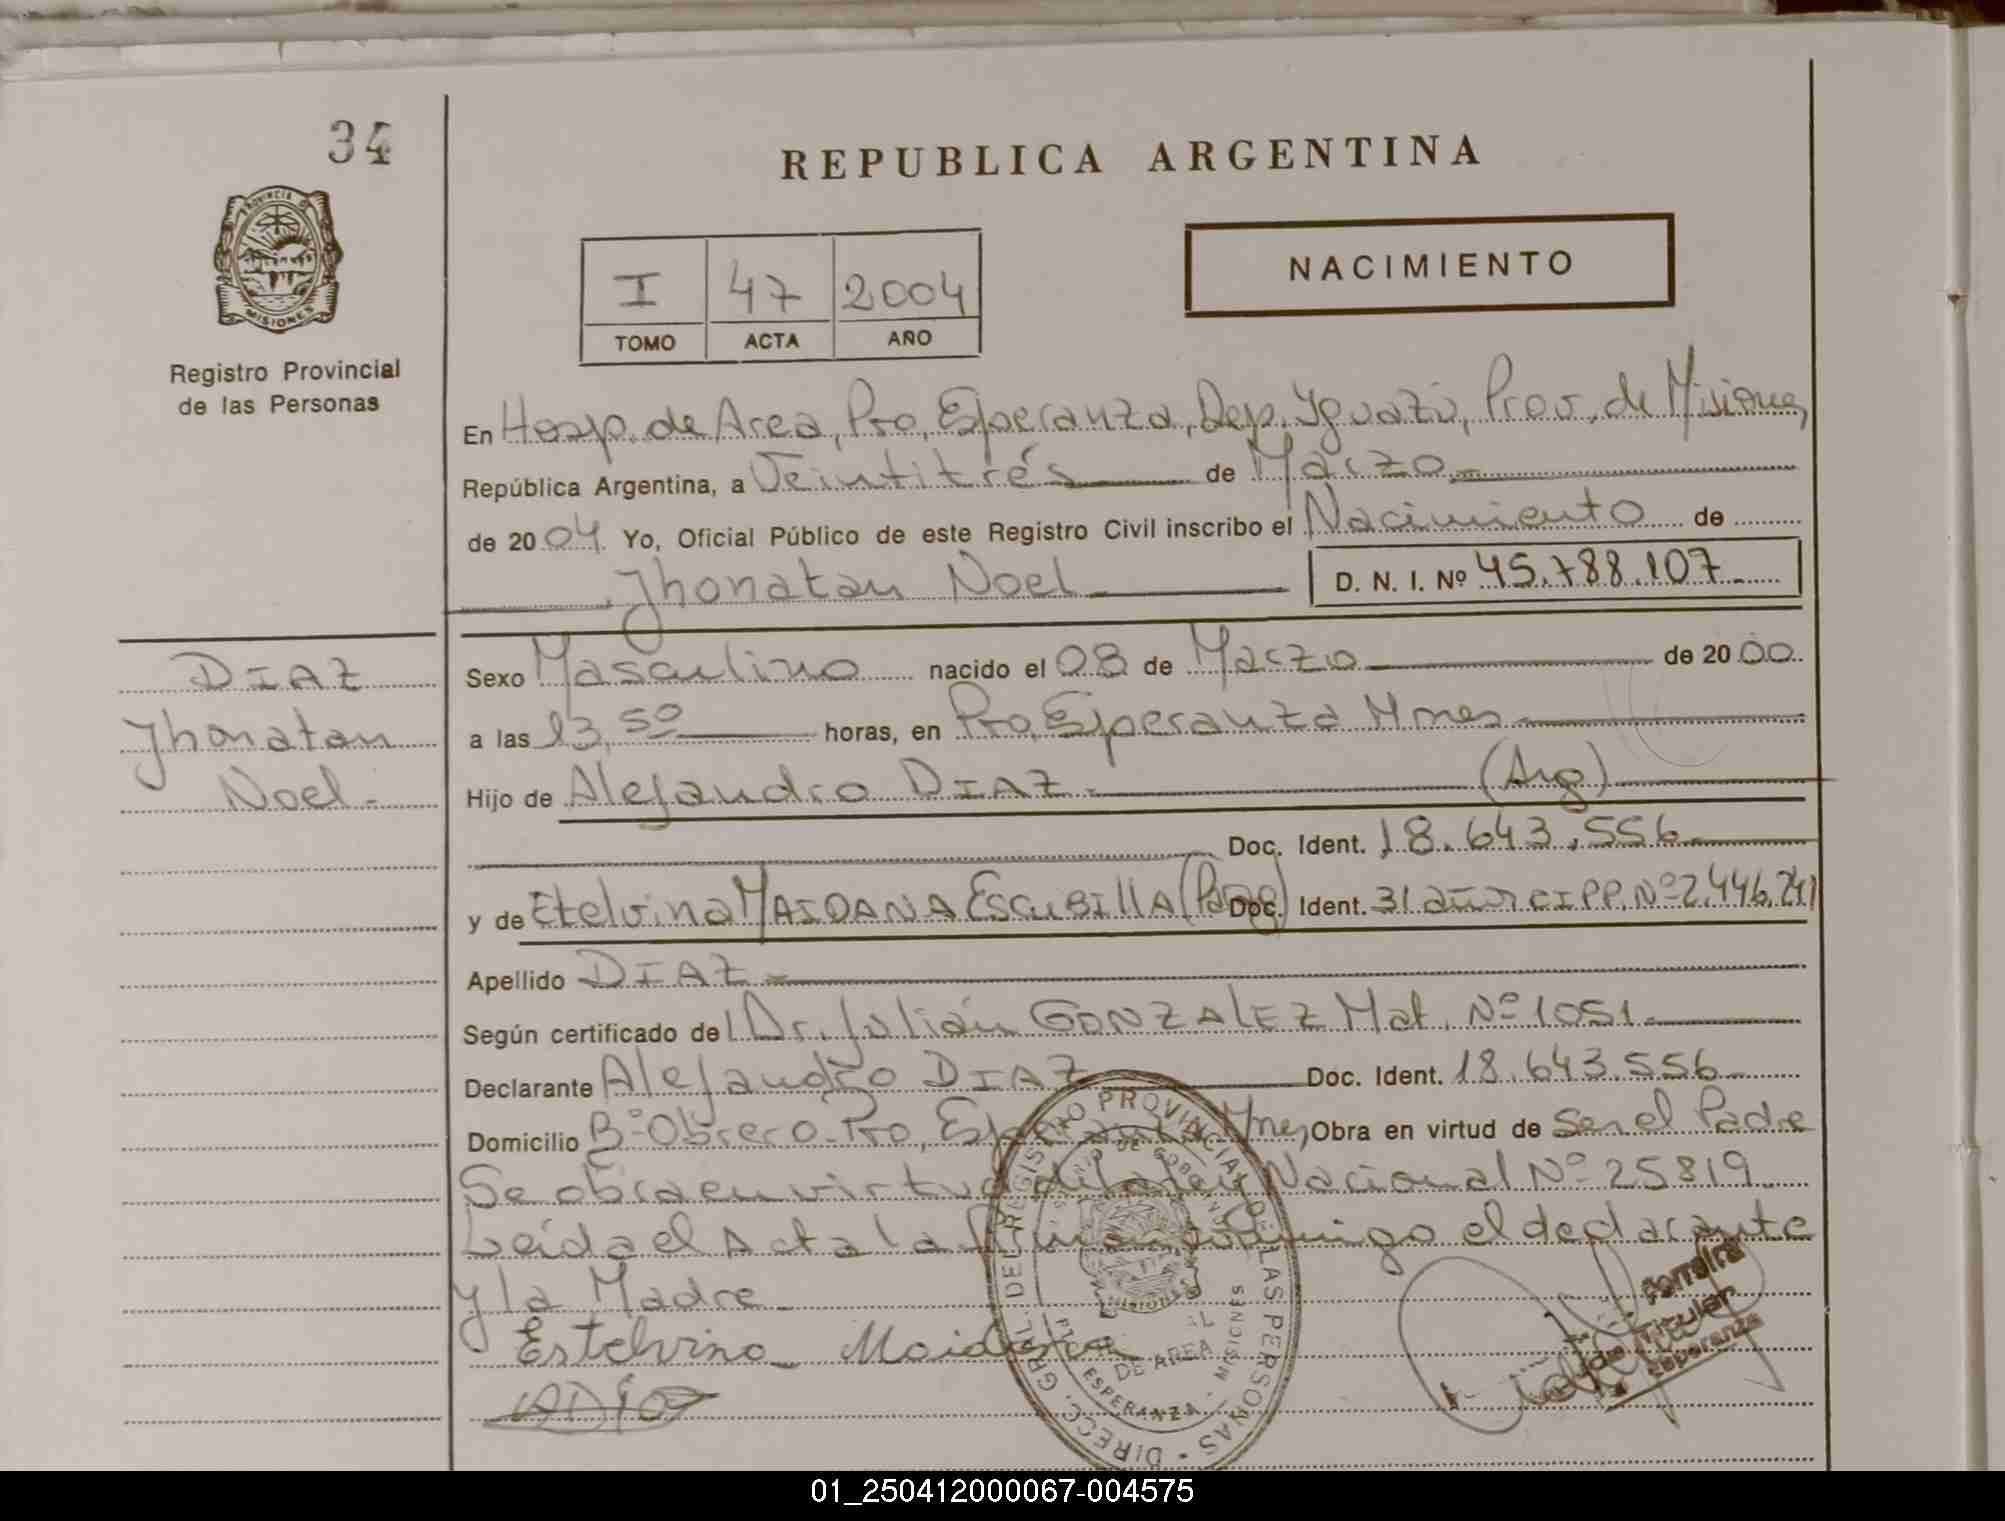 34
REPUBLICA ARGENTINA
PROVINCIA DE
MISIONES
NACIMIENTO
I 47 2004
TOMO ACTA AÑO
Registro Provincial
de las Personas
En Hosp. de Area, Pto, Esperanza, Dep. Yguazú, Prov, de Misiones,
República Argentina, a Veintitrés de Marzo
de 2004 Yo, Oficial Público de este Registro Civil inscribo el Nacimiento de
Jhonatan Noel D. N. I. Nº 45.788.107
DIAZ
Jhonatan
Noel
Sexo Masculino nacido el 08 de Marzo de 2000
a las 13,50 horas, en Pto, Esperanza Mnes
Hijo de Alejandro DIAZ (Arg)
Doc. Ident. 18.643.556
y de Etelvina MAIDANA ESCUBILLA (Parag) Doc. Ident. 31 años CI PP. Nº 2.446.241
Apellido DIAZ
Según certificado del Dr. Julián GONZALEZ Mat. Nº 1051
Declarante Alejandro DIAZ Doc. Ident. 18.643.556
Domicilio Bº Obrero Pto, Esperanza Mnes, Obra en virtud de Ser el Padre
Se obra en virtud de la Ley Nacional Nº 25819
Leída el Acta la Firman conmigo el declarante
y la Madre
Estelvina Maidana
DIRECC. GRAL. DEL REGISTRO PROVINCIAL DE LAS PERSONAS
MISIONES
DE AREA
ESPERANZA - MISIONES
Titular
Esperanza
01_250412000067-004575